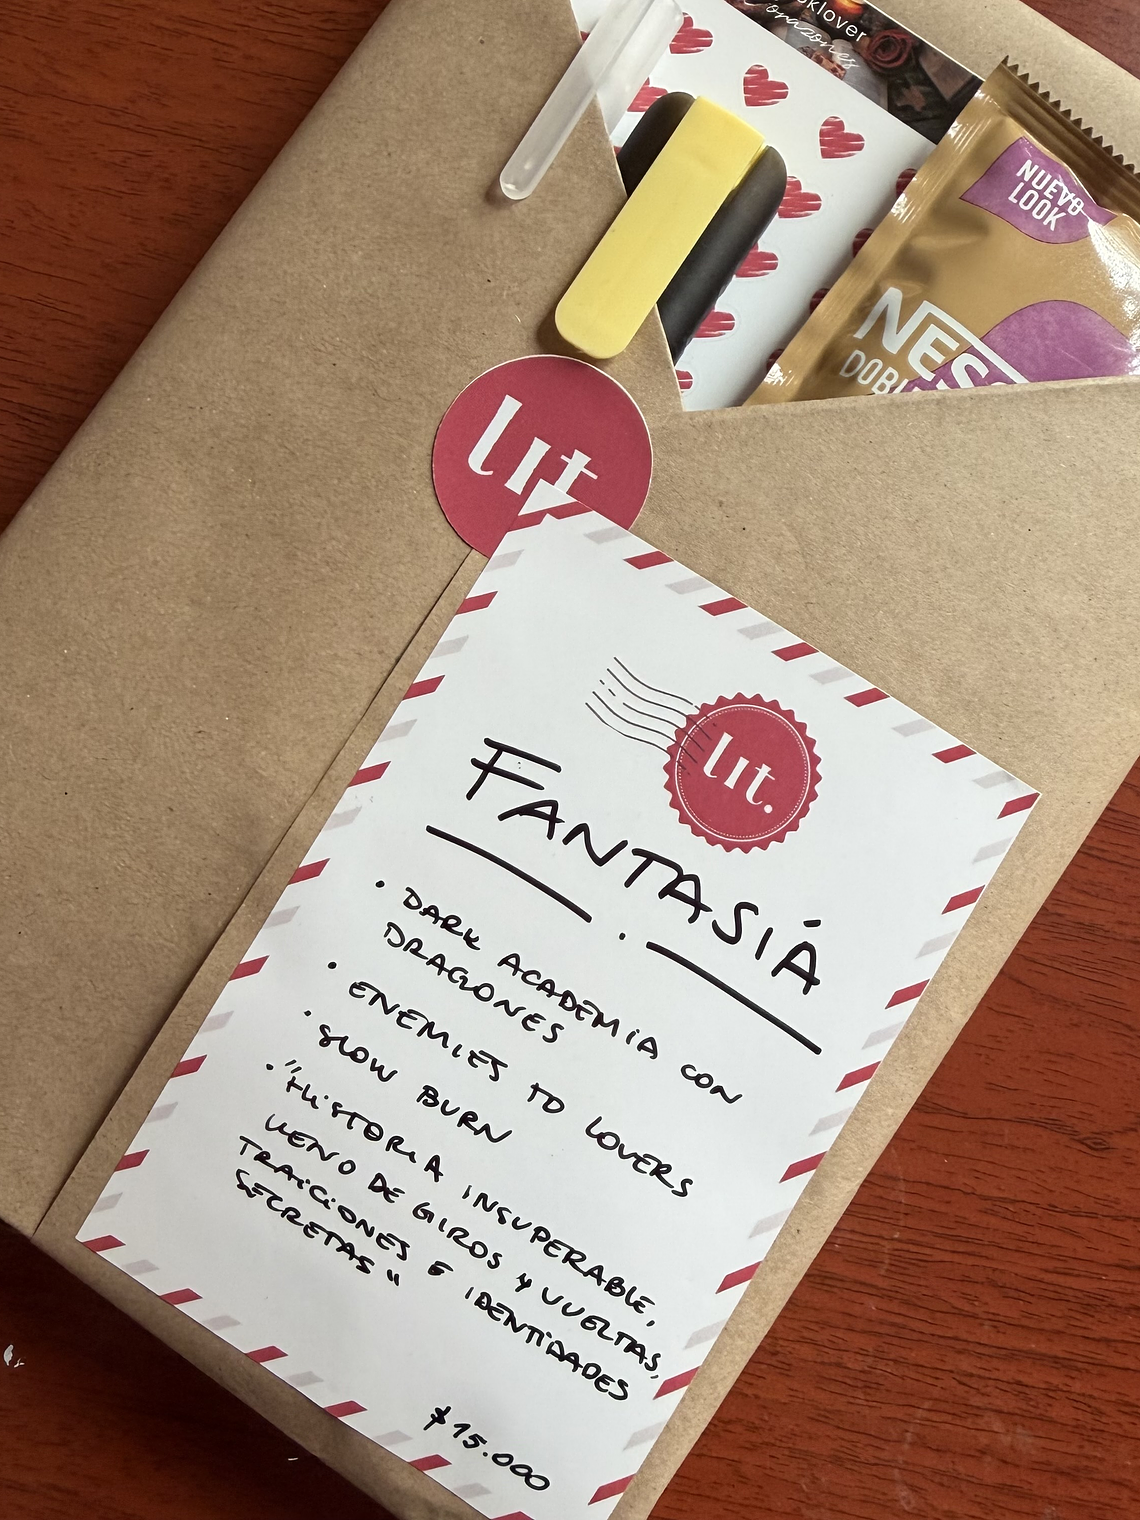 oklover
Corazones
NUEVO
LOOK
NESC
DOBL
lit.
lit.
FANTASIÁ
• DARK ACADEMIA CON
DRAGONES
• ENEMIES TO LOVERS
• SLOW BURN
• "HISTORIA INSUPERABLE,
LLENO DE GIROS Y VUELTAS,
TRAICIONES E IDENTIDADES
SECRETAS"
$15.000